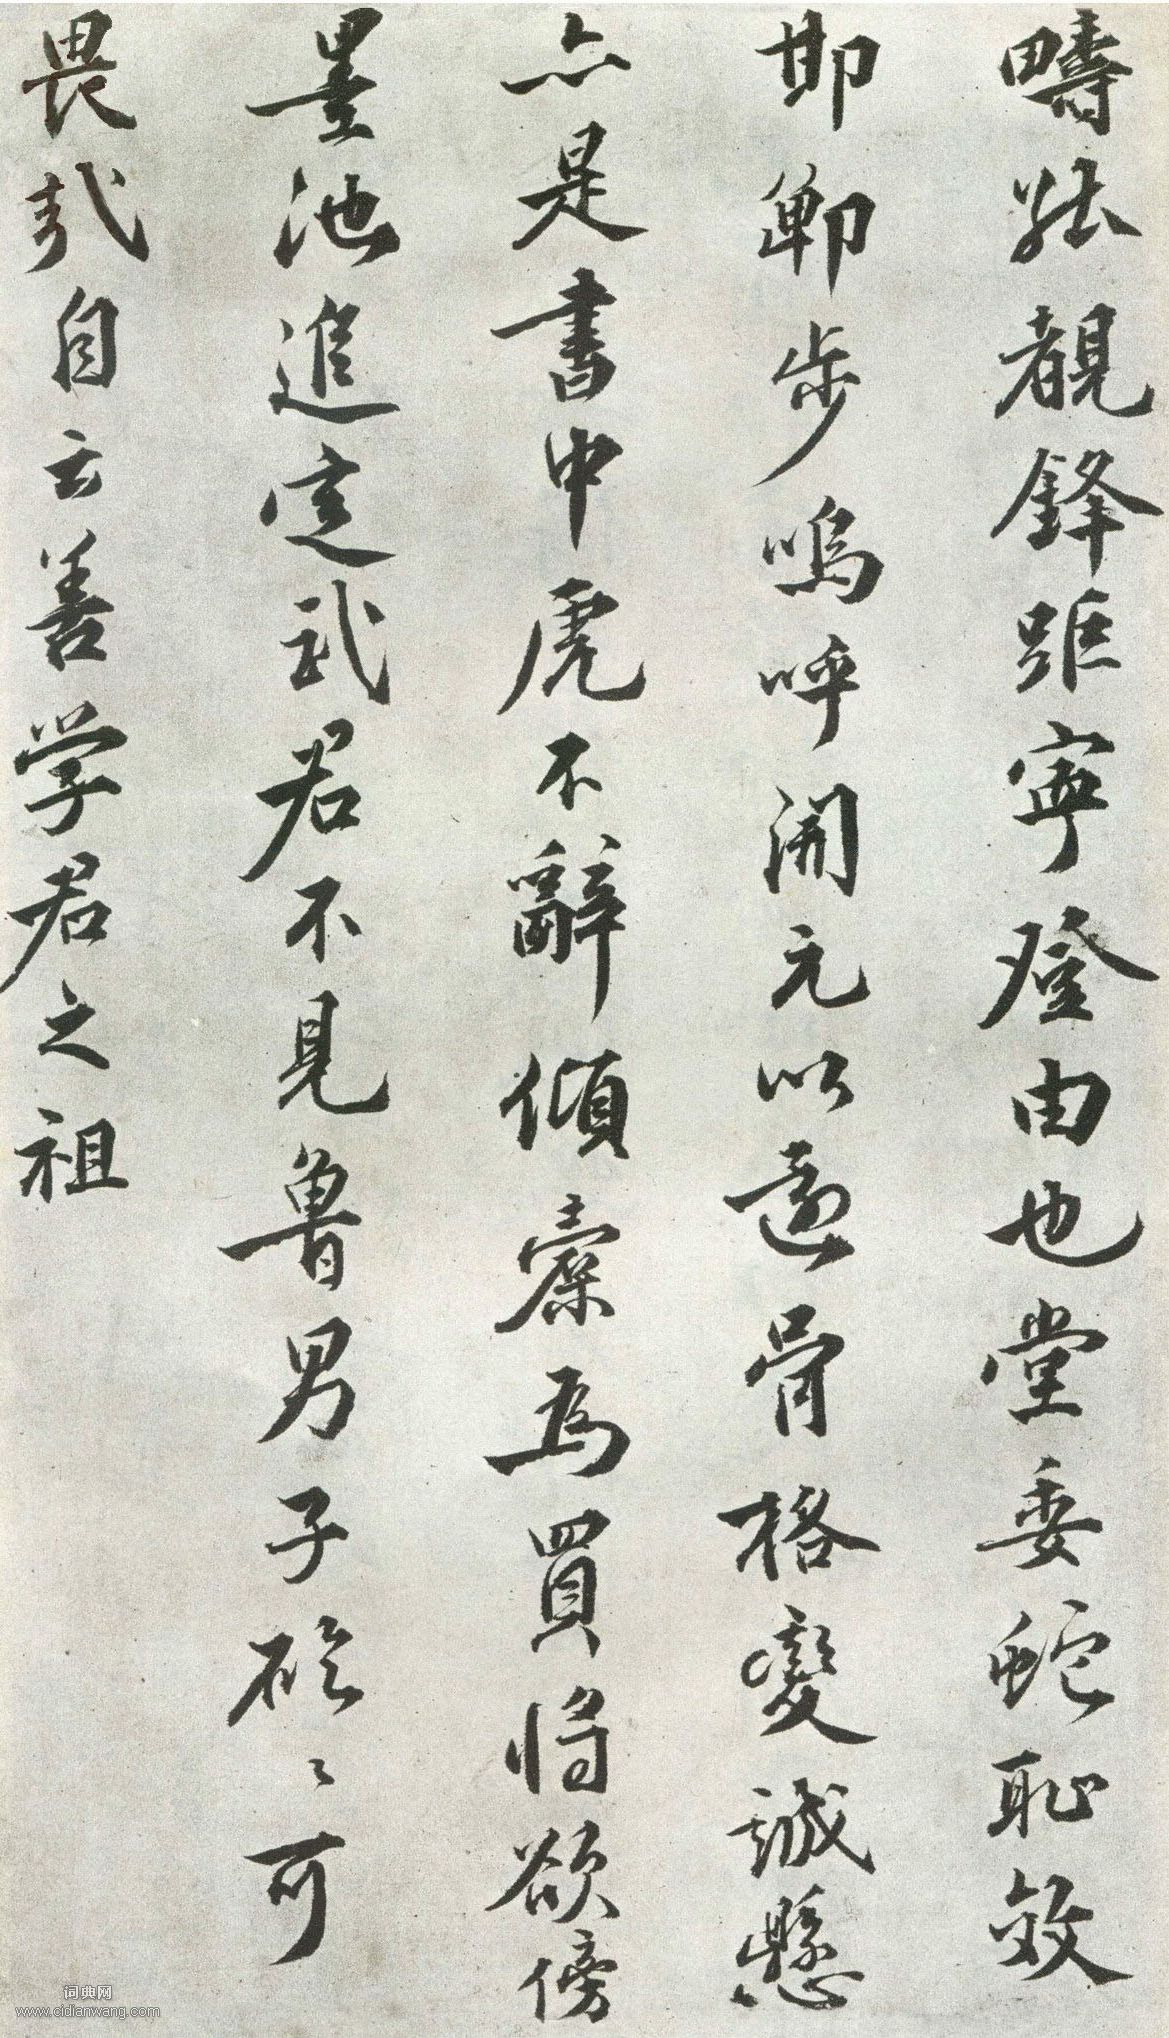 疇能覩鋒距寧登由也堂委蛇耻效
邯鄲步嗚呼開元以還骨格變誠懸
亦是書中虎不辭傾橐為買將欲傍
墨池追定武君不見魯男子硜〻可
畏哉自云善学君之祖
词典网
www.cidianwang.com